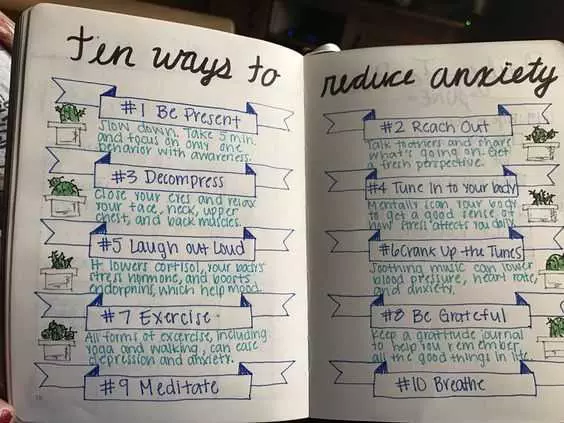 ten ways to
reduce anxiety
#1 Be Present
Slow down. Take 5 min.
and focus on only one
behavior with awareness.
#2 Reach Out
Talk to others and share
what's going on. Get
a fresh perspective.
#3 Decompress
Close your eyes and relax
your face, neck, upper
chest, and back muscles.
#4 Tune In to your body
Mentally scan your body
to get a good sense of
how stress affects you daily.
#5 Laugh out Loud
It lowers cortisol, your body's
stress hormone, and boosts
endorphins, which help mood.
#6 Crank Up the Tunes
Soothing music can lower
blood pressure, heart rate,
and anxiety.
#7 Exercise
All forms of excercise, including
yoga and walking, can ease
depression and anxiety.
#8 Be Grateful
Keep a gratitude journal
to help you remember
all the good things in life.
#9 Meditate
#10 Breathe